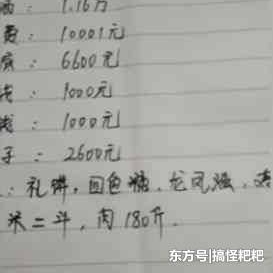 1.16万
费：10001元
6600元
1000元
1000元
子：2600元
：礼饼，四色糖，龙凤
米二斗，肉180斤.
东方号|搞怪粑粑